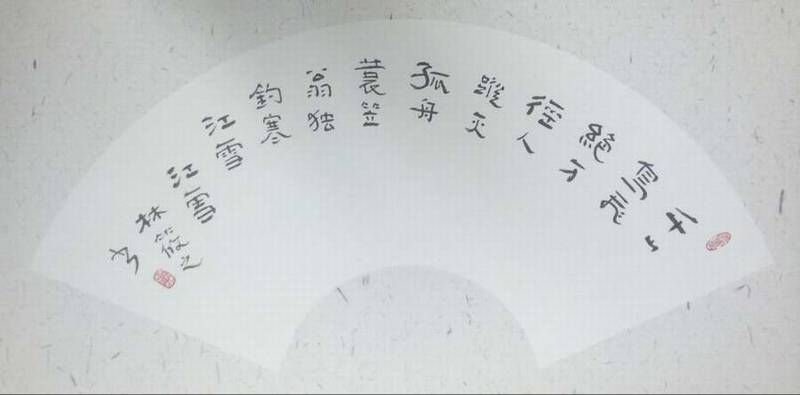 千山
鳥飛
絕万
徑人
蹤灭
孤舟
蓑笠
翁独
釣寒
江雪
江雪
林筱之
书